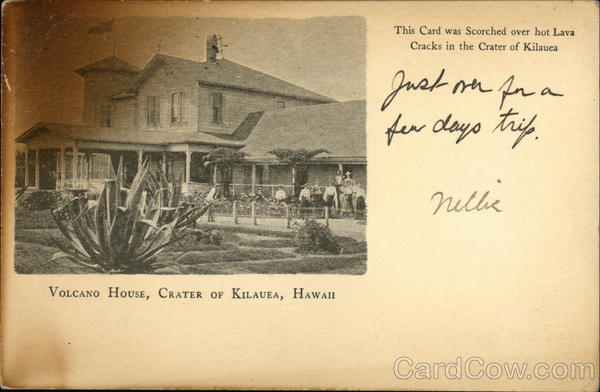 This Card was Scorched over hot Lava
Cracks in the Crater of Kilauea
Just over for a
few days trip.
Nellie
Volcano House, Crater of Kilauea, Hawaii
CardCow.com